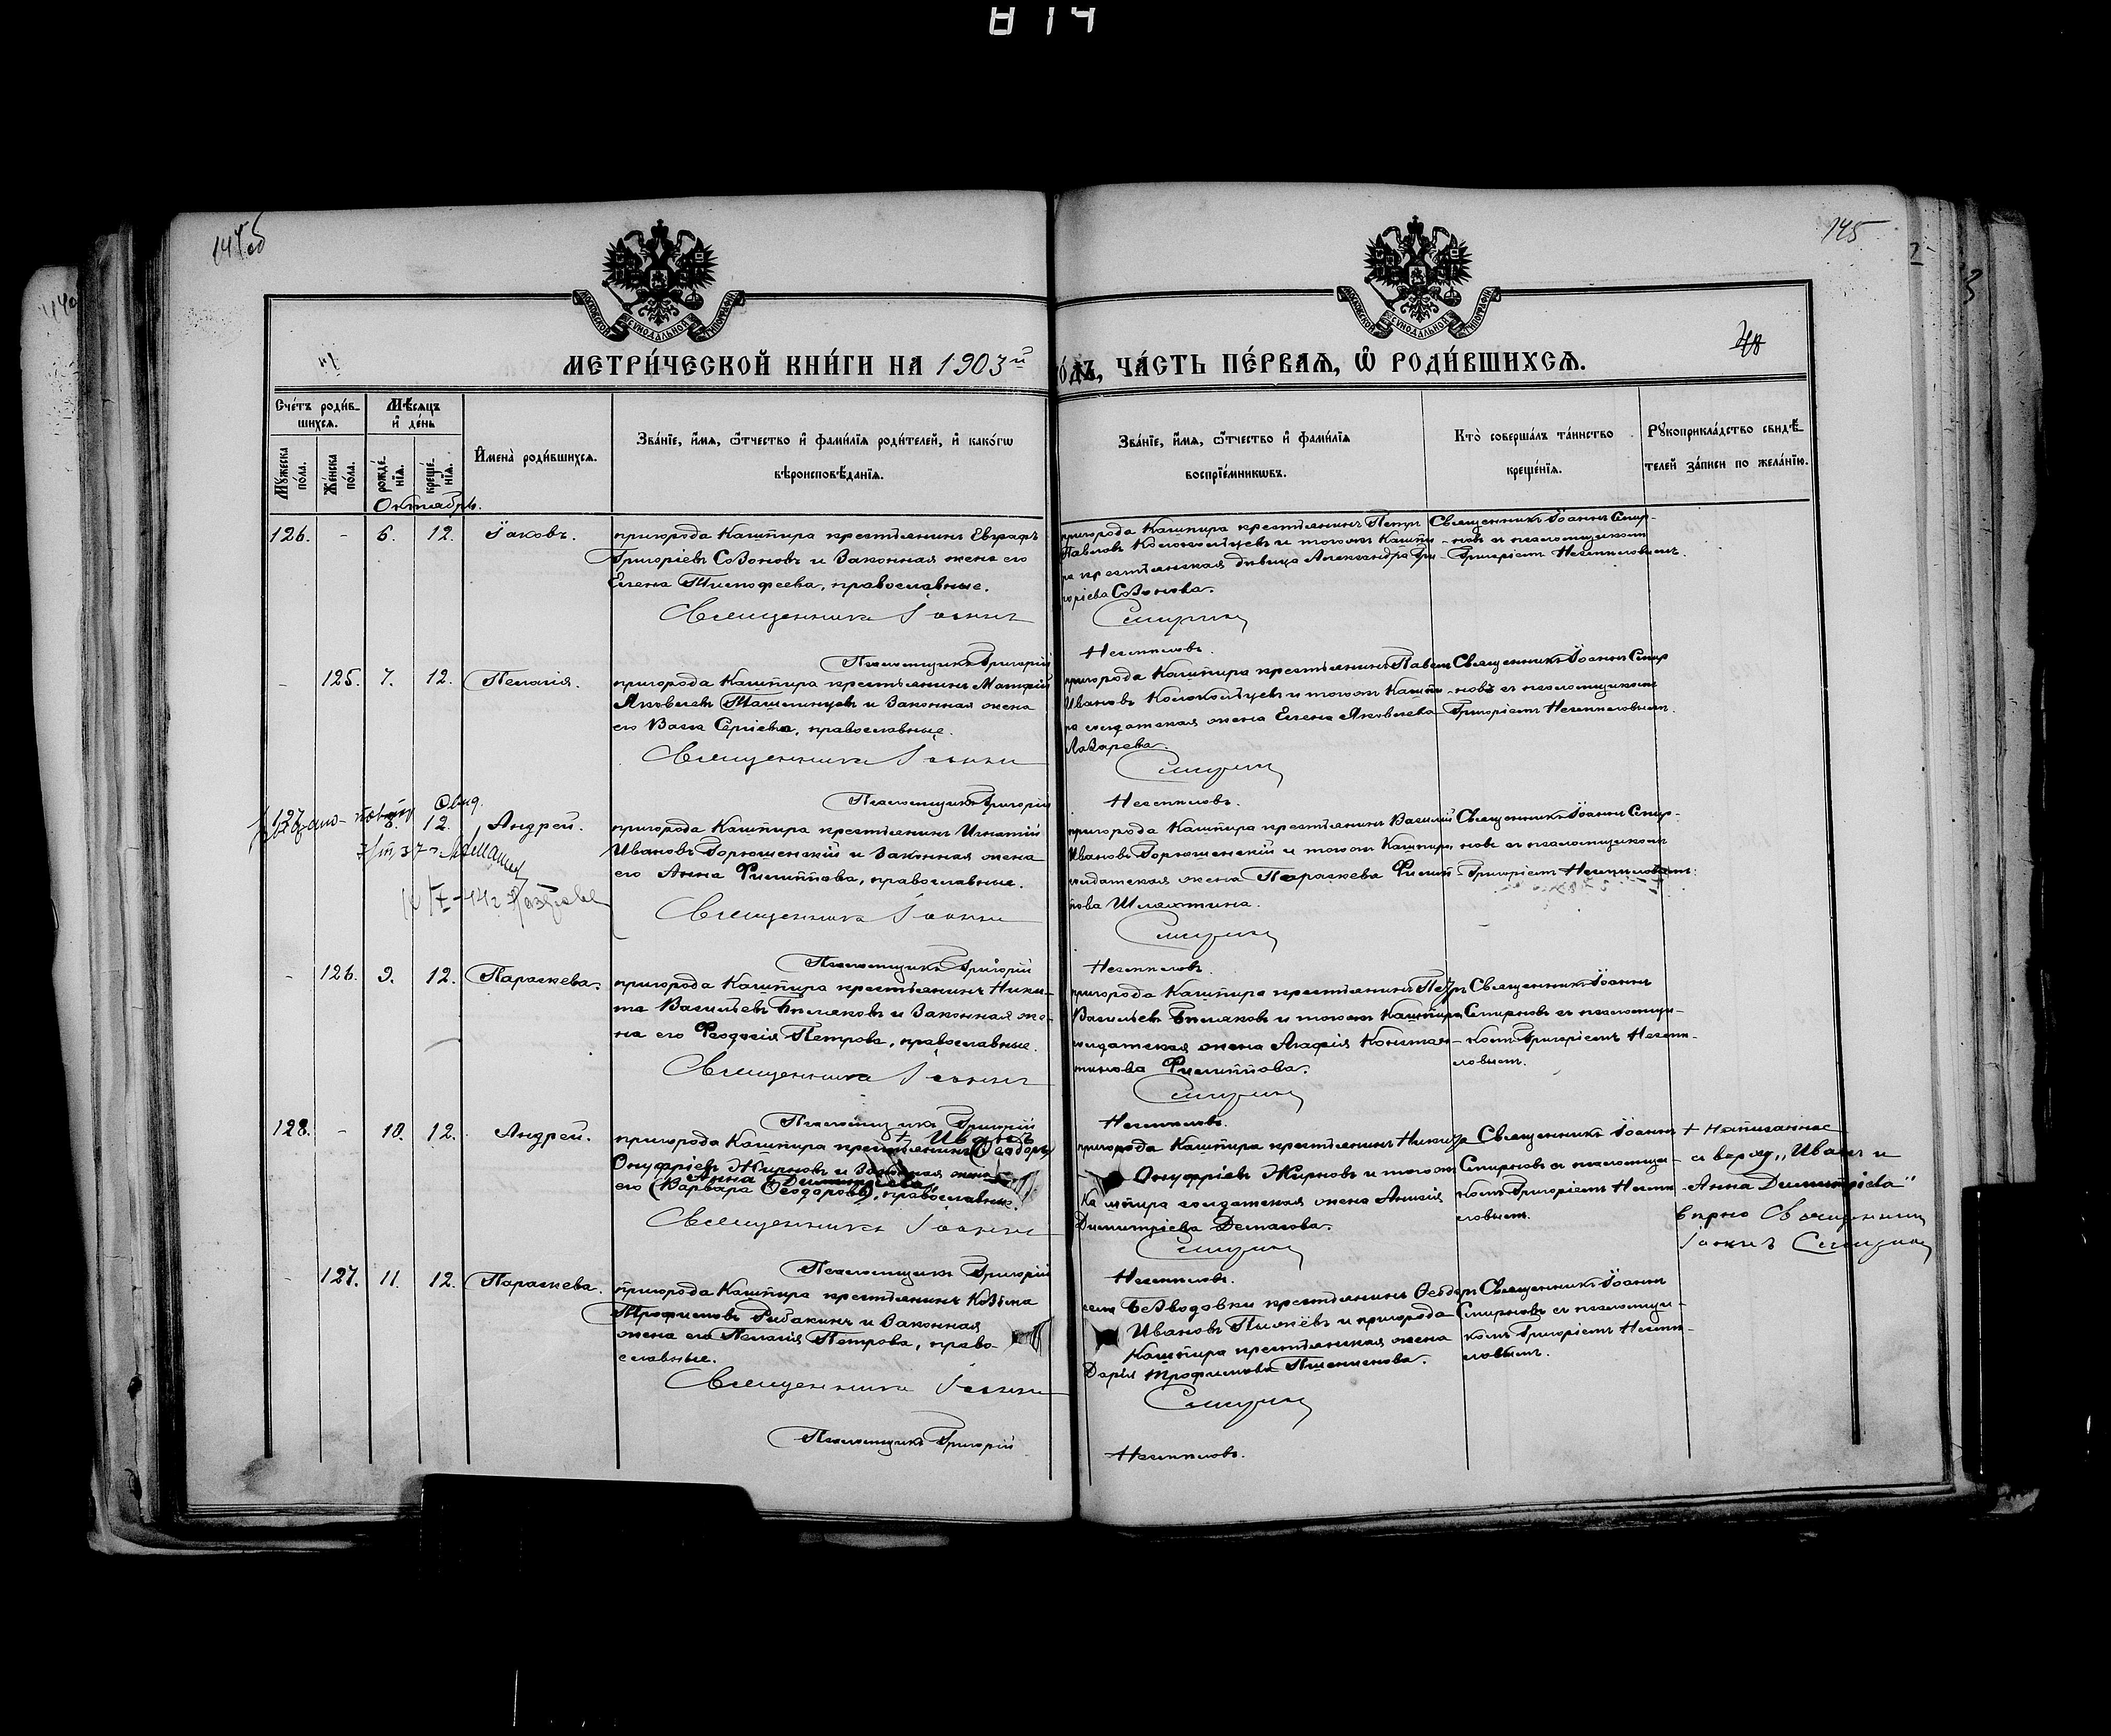 814
144об
145
МОСКОВСКОЙ СѴНОДАЛЬНОЙ ТИПОГРАФІИ
МОСКОВСКОЙ СѴНОДАЛЬНОЙ ТИПОГРАФІИ
48
МЕТРИ́ЧЕСКОЙ КНИ́ГИ НА 1903й
ГО́ДЪ, ЧА́СТЬ ПЕ́РВАѦ, Ѽ РОДИ́ВШИХСѦ.
Сче́тъ роди́в-
шихсѧ.
Мѣ́сѧцъ
и҆ де́нь
Мꙋ́жеска по́ла.
Же́нска по́ла.
рожде́-нїѧ.
креще́-нїѧ.
И҆мена̀ роди́вшихсѧ.
Зва́нїе, и҆́мѧ, ѻ҆́тчество и҆ фами́лїѧ роди́телей, и҆ како́гѡ
вѣроисповѣ́данїѧ.
Зва́нїе, и҆́мѧ, ѻ҆́тчество и҆ фами́лїѧ
воспрїе́мникѡвъ.
Кто̀ соверша́лъ та́инство
креще́нїѧ.
Рꙋкоприкла́дство свидѣ́-
телей за́писи по жела́нїю.
Октябрь.
126. - 6. 12. Іаковъ.
пригорода Кашпира крестьянинъ Евграфъ
Григоріевъ Созоновъ и законная жена его
Елена Тимофеева, православные.
Священникъ Іоаннъ
Псаломщикъ Григорій
пригорода Кашпира крестьянинъ Петръ
Павловъ Колокольцевъ и того-же Кашпи-
ра крестьянская дѣвица Александра Гри-
горіева Созонова.
Смирновъ
Священникъ Іоаннъ Смир-
новъ съ псаломщикомъ
Григоріемъ
- 125. 7. 12. Пелагія.
пригорода Кашпира крестьянинъ Матфій
Яковлевъ Ташлинцевъ и законная жена
его Васса Сергіева, православные.
Священникъ Іоаннъ
Псаломщикъ Григорій
пригорода Кашпира крестьянинъ Павелъ
Ивановъ Колокольцевъ и того-же Кашпи-
ра солдатская жена Елена Яковлева
Лазарева.
Смирновъ
Священникъ Іоаннъ Смир-
новъ съ псаломщикомъ
Григоріемъ
127. 12. Андрей.
пригорода Кашпира крестьянинъ Игнатій
Ивановъ Горюшенскій и законная жена
его Анна Филиппова, православные.
Священникъ Іоаннъ
Псаломщикъ Григорій
пригорода Кашпира крестьянинъ Василій
Ивановъ Горюшенскій и того-же Кашпира
солдатская жена Параскева Филип-
пова Шляхтина.
Смирновъ
Священникъ Іоаннъ Смир-
новъ съ псаломщикомъ
Григоріемъ
- 126. 9. 12. Параскева.
пригорода Кашпира крестьянинъ Ники-
та Васильевъ Бѣляковъ и законная же-
на его Феодосія Петрова, православные.
Священникъ Іоаннъ
Псаломщикъ Григорій
пригорода Кашпира крестьянинъ Петръ
Васильевъ Бѣляковъ и того-же Кашпира
солдатская жена Агафія Констан-
тинова Филиппова.
Смирновъ
Священникъ Іоаннъ
Смирновъ съ псаломщи-
комъ Григоріемъ
128. - 10. 12. Андрей.
+ Иванъ
пригорода Кашпира крестьянинъ (Феодоръ)
Онуфріевъ Жирновъ и законная жена
Анна Димитріева
его (Варвара Феодорова), православные.
Священникъ Іоаннъ
Псаломщикъ Григорій
пригорода Кашпира крестьянинъ
Онуфріевъ Жирновъ и того-же
Кашпира солдатская жена
Димитріева
Смирновъ
Священникъ Іоаннъ
Смирновъ съ псаломщи-
комъ Григоріемъ
+ Написанное
сверху „Иванъ и
Анна Димитріева"
вѣрно Священникъ
Іоаннъ Смирновъ
- 127. 11. 12. Параскева.
пригорода Кашпира крестьянинъ Козьма
Трофимовъ Рыбакинъ и законная
жена его Пелагія Петрова, право-
славные.
Священникъ Іоаннъ
Псаломщикъ Григорій
села Безводовки крестьянинъ Феодоръ
Ивановъ и пригорода
Кашпира крестьянская жена
Дарія Трофимова Пшенинова.
Смирновъ
Священникъ Іоаннъ
Смирновъ съ псаломщи-
комъ Григоріемъ